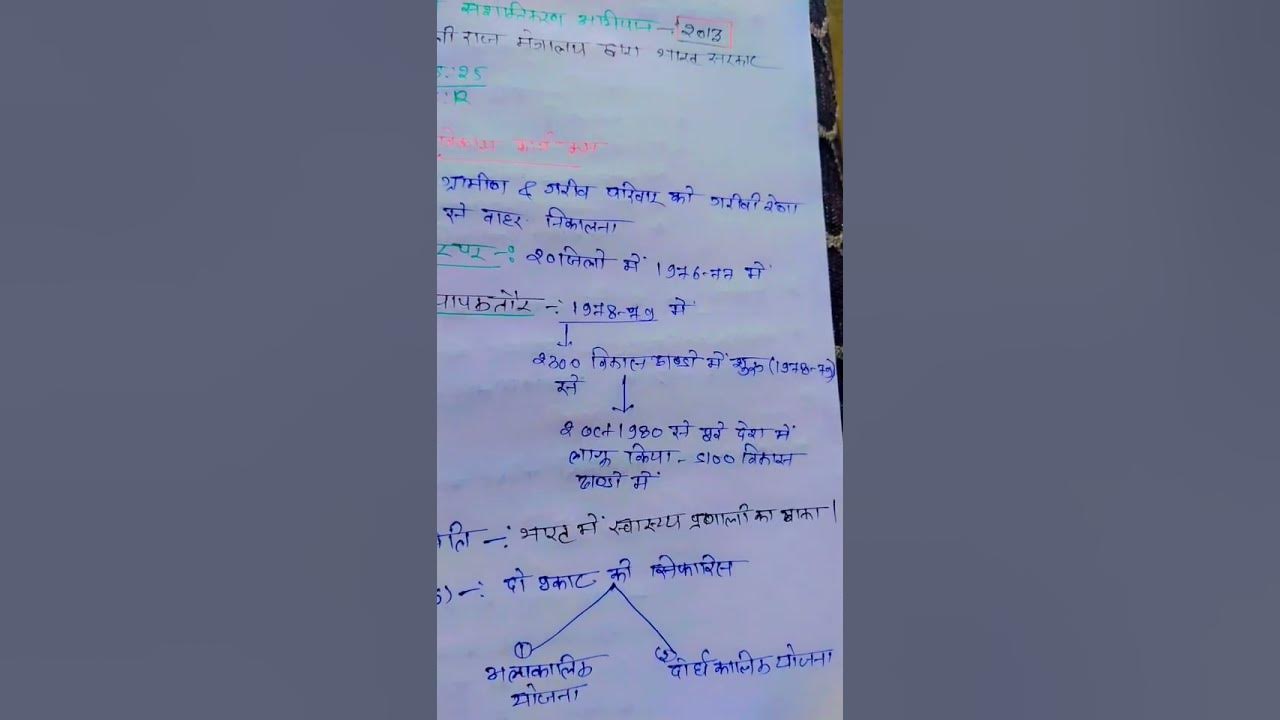 सशक्तिकरण अभीयान → २०१३
राज मंत्रालय द्वारा भारत सरकार
: २५
: १२
विकास कार्य क्रम
ग्रामीण & गरीब परिवार को गरीबी रेखा
से बाहर निकालना
स्पर -: २० जिलो में 1976-77 में
यापकतौर -: 1978-79 में
२३०० विकास खण्डो में शुरू (1978-79)
से
२ oct 1980 से पुरे देश में
लागू किया - 5100 विकास
खण्डो में
मति -: भारत में स्वास्थ्य प्रणाली का खाका |
) -: दो प्रकार की सिफारिस
① अल्पकालिक
योजना
(2) दीर्घ कालिक योजना